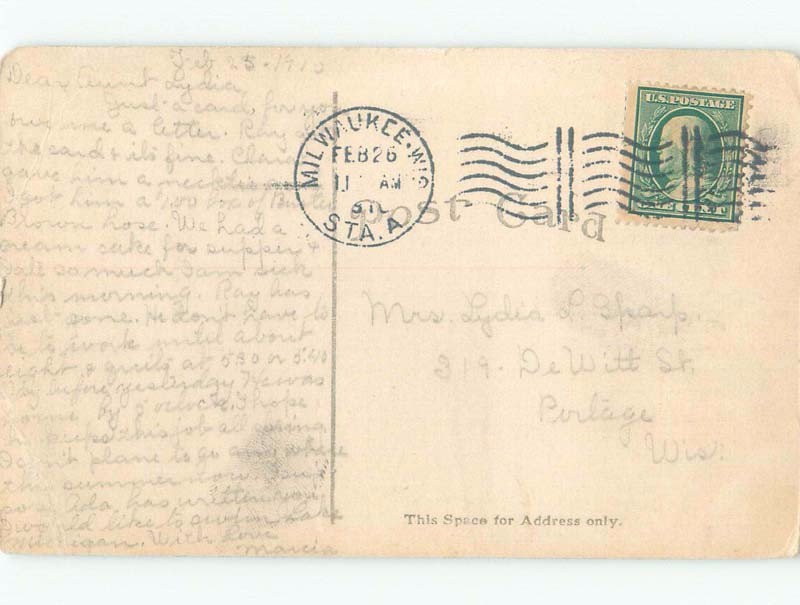 Feb 25. 1910
Dear Aunt Lydia,
Just a card, for you
owe me a letter. Ray
the card & its fine. Clara
gave him a necktie
I got him a 1.00 box of Buster
Brown hose. We had a
cream cake for supper &
I ate so much I am sick
this morning. Ray has
just gone. He dont have to
go to work until about
eight & quits at 5:30 or 5:40
Day before yesterday He was
home by 5 o'clock. I hope
he keeps this job all
Don't plane to go any where
this summer now.
pose Ada has written you
I would like to swim Lake
Michigan. With love
Marcia
MILWAUKEE, WIS.
FEB 26
11 AM
STA. A
U.S. POSTAGE
ONE CENT
Post Card
Mrs. Lydia L. Sharp.
319. De Witt St.
Portage
Wis.
This Space for Address only.